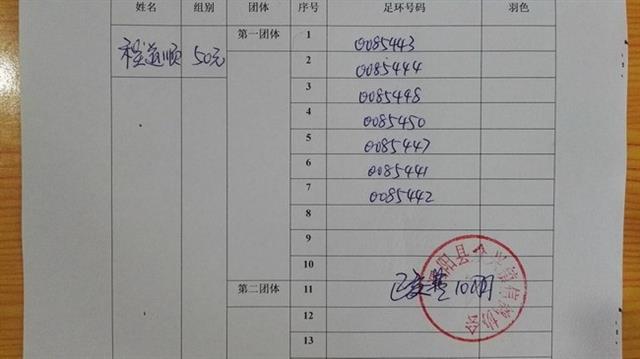 姓名 组别 团体 序号 足环号码 羽色
程道顺 50元 第一团体 1 0085443
2 0085444
3 0085448
4 0085450
5 0085447
6 0085441
7 0085442
8
9
10
第二团体 11 已交费100
12
13